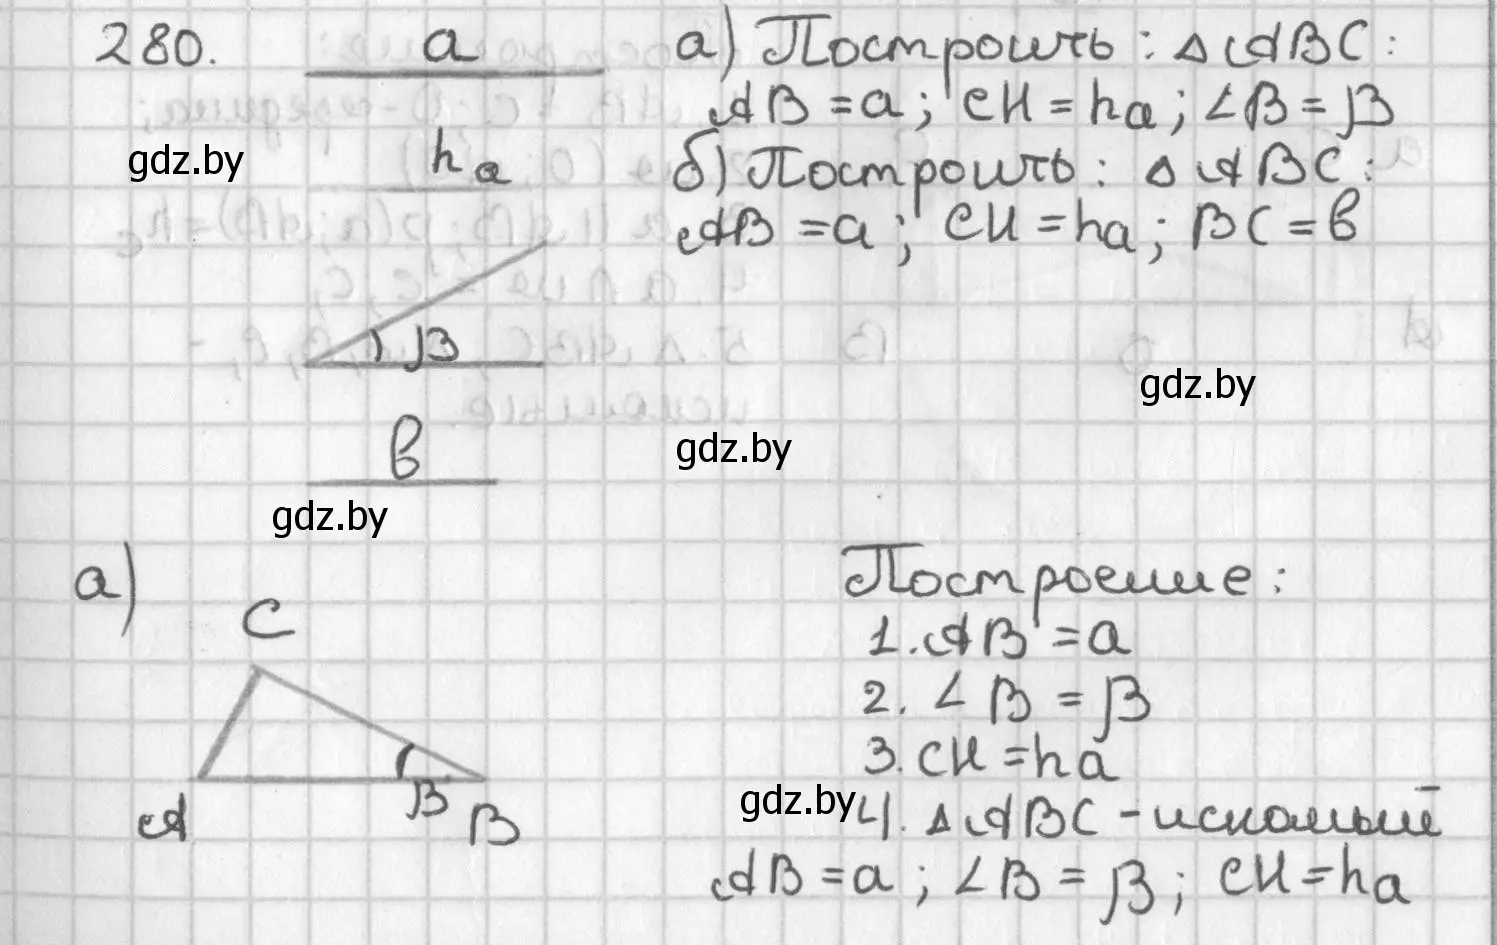 280.
a
hₐ
β
в
а) Построить: △ABC:
AB = a; CH = hₐ; ∠B = β
б) Построить: △ABC:
AB = a; CH = hₐ; BC = в
gdz.by
gdz.by
gdz.by
gdz.by
а)
C
A
β
B
Построение:
1. AB = a
2. ∠B = β
3. CH = hₐ
gdz.by
4. △ABC - искомый
AB = a; ∠B = β; CH = hₐ